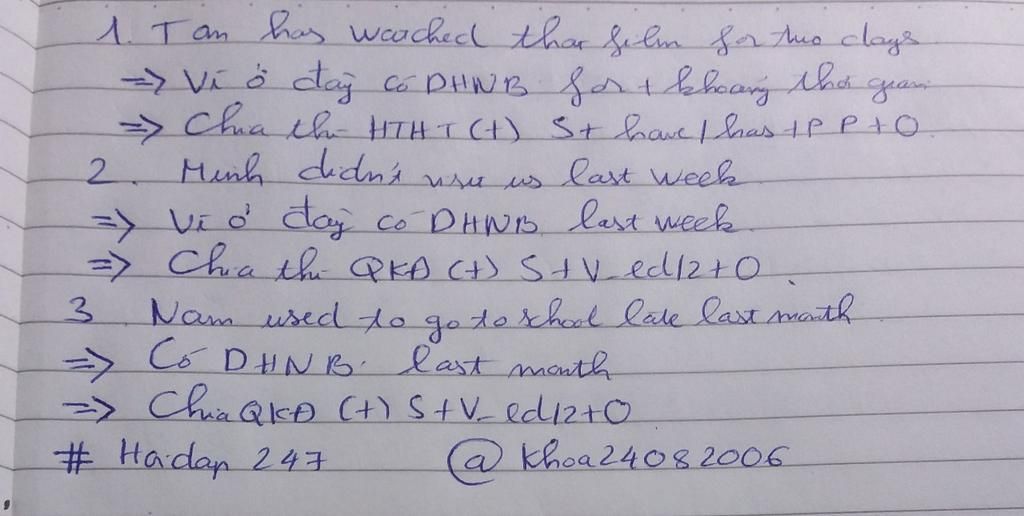 1. Tan has watched that film for two days
=> Vì ở đây có DHNB for + khoảng thời gian
=> Chia thì HTHT (+) S + have / has + P P + O.
2. Minh didn't visit us last week
=> Vì ở đây có DHNB last week
=> Chia thì QKĐ (+) S + V_ed/2 + O.
3 Nam used to go to school late last month
=> Có DHNB. last month
=> Chia QKĐ (+) S + V_ ed/2 + O
# Hoidap 247 @ khoa24082006